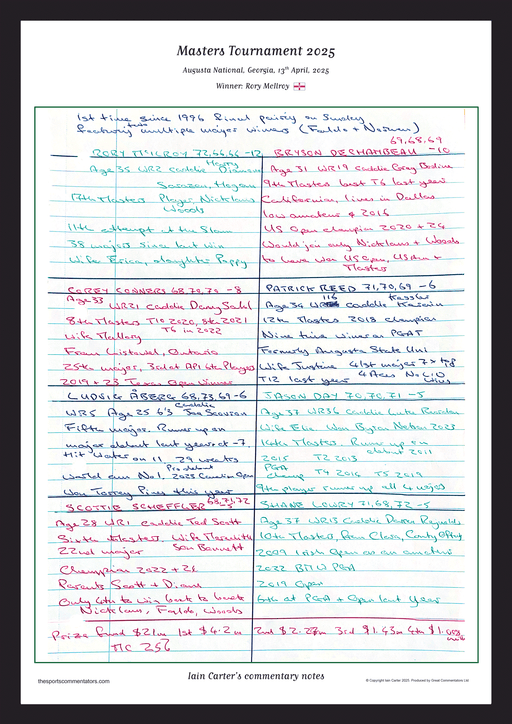 Masters Tournament 2025
Augusta National, Georgia, 13th April, 2025
Winner: Rory McIlroy
1st time since 1996 final pairing on Sunday
featuring multiple major winners (Faldo + Norman)
RORY McILROY 72,66,66 -12
Age 35 WR2 caddie Harry Diamond
Sarazen, Hogan
17th Masters Player, Nicklaus
Woods
11th attempt at the Slam
38 majors since last win
Wife Erica, daughter Poppy
69,68,69
BRYSON DECHAMBEAU -10
Age 31 WR19 caddie Greg Bodine
9th Masters best T6 last year
Californian, lives in Dallas
low amateur @ 2016
US Open champion 2020 + 24
Would join only Nicklaus + Woods
to have won US Open, US Am +
Masters
COREY CONNERS 68,70,70 -8
Age 33 WR21 caddie Danny Sahl
8th Masters T10 2020, 8th 2021
T6 in 2022
Wife Mallory
From Listowel, Ontario
25th major, 3rd at API 6th Players
2019 + 23 Texas Open Winner
PATRICK REED 71,70,69 -6
Age 34 WR 116 caddie Kessler Karain
12th Masters 2018 champion
Nine time winner on PGAT
Formerly Augusta State Uni
Wife Justine 41st major 7x top
T12 last year 4 Aces No LIV
Wins
LUDVIG ÅBERG 68,73,69 -6
WR5 Age 25 6'3 caddie Joe Skovron
Fifth major. Runner up on
major debut last year at -7
Hit Water on 11 29 weeks
Pro debut
world am No1, 2023 Canadian Open
Won Torrey Pines this year
JASON DAY 70,70,71 -5
Age 37 WR36 caddie Luke Reardon
Wife Ellie Won Byron Nelson 2023
14th Masters, Runner up on
debut 2011
2015 T2 2013
PGA
Champ T4 2016 T5 2019
9th player runner up all 4 majors
SCOTTIE SCHEFFLER 68,71,72 -5
Age 28 WR1 caddie Ted Scott
Sixth Masters. Wife Meredith
22nd major Son Bennett
Champion 2022 + 24
Parents Scott + Diane
Only 4th to win back to back
Nicklaus, Faldo, Woods
SHANE LOWRY 71,68,72 -5
Age 37 WR13 caddie Darren Reynolds
10th Masters, from Clara, County Offaly
2009 Irish Open as an amateur
2022 BMW PGA
2019 Open
6th at PGA + Open last year
Prize fund $21m 1st $4.2m 2nd $2.27m 3rd $1.43m 4th $1.008
mill
TIC 256
Iain Carter's commentary notes
thesportscommentators.com
© Copyright Iain Carter 2025. Produced by Great Commentaries Ltd